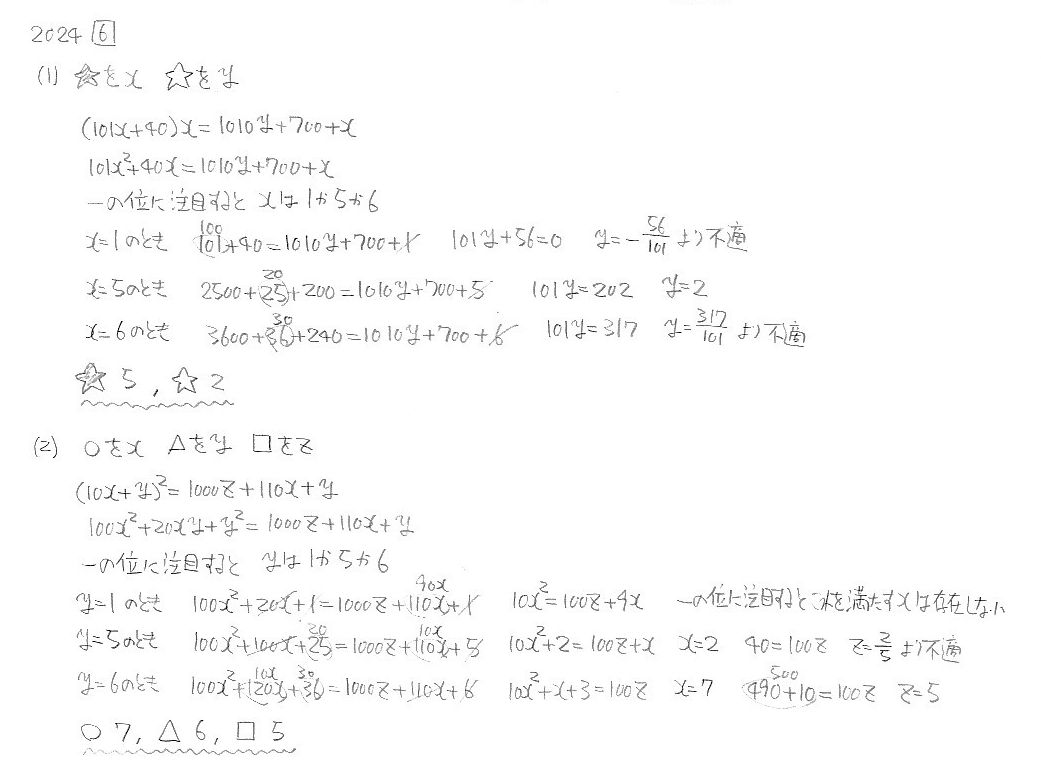 2024 6
(1) ★をx ☆をy
(101x+40)x=1010y+700+x
101x²+40x=1010y+700+x
一の位に注目すると xは1か5か6
x=1のとき 100 101+40=1010y+700+1 101y+56=0 y=-56/101 より不適
x=5のとき 2500+25+200=1010y+700+5 20 101y=202 y=2
x=6のとき 3600+36+240=1010y+700+6 30 101y=317 y=317/101 より不適
★5, ☆2
(2) ○をx △をy □をz
(10x+y)²=1000z+110x+y
100x²+20xy+y²=1000z+110x+y
一の位に注目すると yは1か5か6
y=1のとき 100x²+20x+1=1000z+110x+1 90x 10x²=100z+9x 一の位に注目するとこれを満たすxは存在しない
y=5のとき 100x²+100x+25=1000z+110x+5 20 10x 10x²+2=100z+x x=2 40=100z z=2/5 より不適
y=6のとき 100x²+120x+36=1000z+110x+6 10x 30 10x²+x+3=100z x=7 490+10=100z 500 z=5
○7, △6, □5